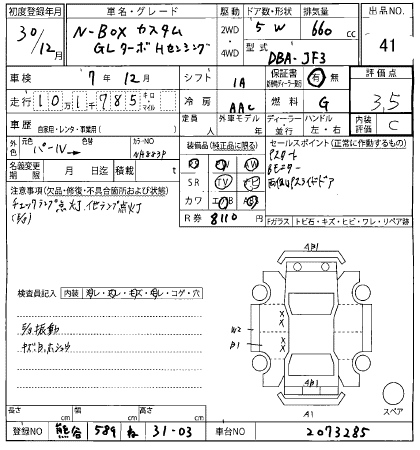 初度登録年月
30/12月
車名・グレード
N-BOX カスタム
GL ターボ Hセンシング
駆動
2WD
4WD
ドア数・形状
5 W
排気量
660 cc
型式
DBA-JF3
出品NO.
41
車検
7年12月
シフト
IA
保証書
有・無
評価点
3.5
走行
101785
キロ・マイル
冷房
AAC
燃料
G
車歴
自家用・レンタ・事業用( )
定員
人
外車モデル
年
ディーラー
並行
ハンドル
左・右
内装評価
C
外色
元色
パールV
カラーNO
NH883P
名義変更期限
月 日迄
積載
t
装備品(純正品に限る)
SR
TV
ナビ
カワ
エアB
ABS
R券
8110
セールスポイント(正常に作動するもの)
Pスタート
Bモニター
両側Pスライドドア
Fガラス・トビ石・キズ・ヒビ・ワレ・リペア跡
注意事項(欠品・修復・不具合箇所および状態)
チェックランプ点灯
検査員記入
内装
コゲ・穴
振動
4B1
W2
B1
4B1
A1
スペア
長さ cm
幅 cm
高さ cm
登録NO
熊谷 589 ね 31-03
車台NO
2073285